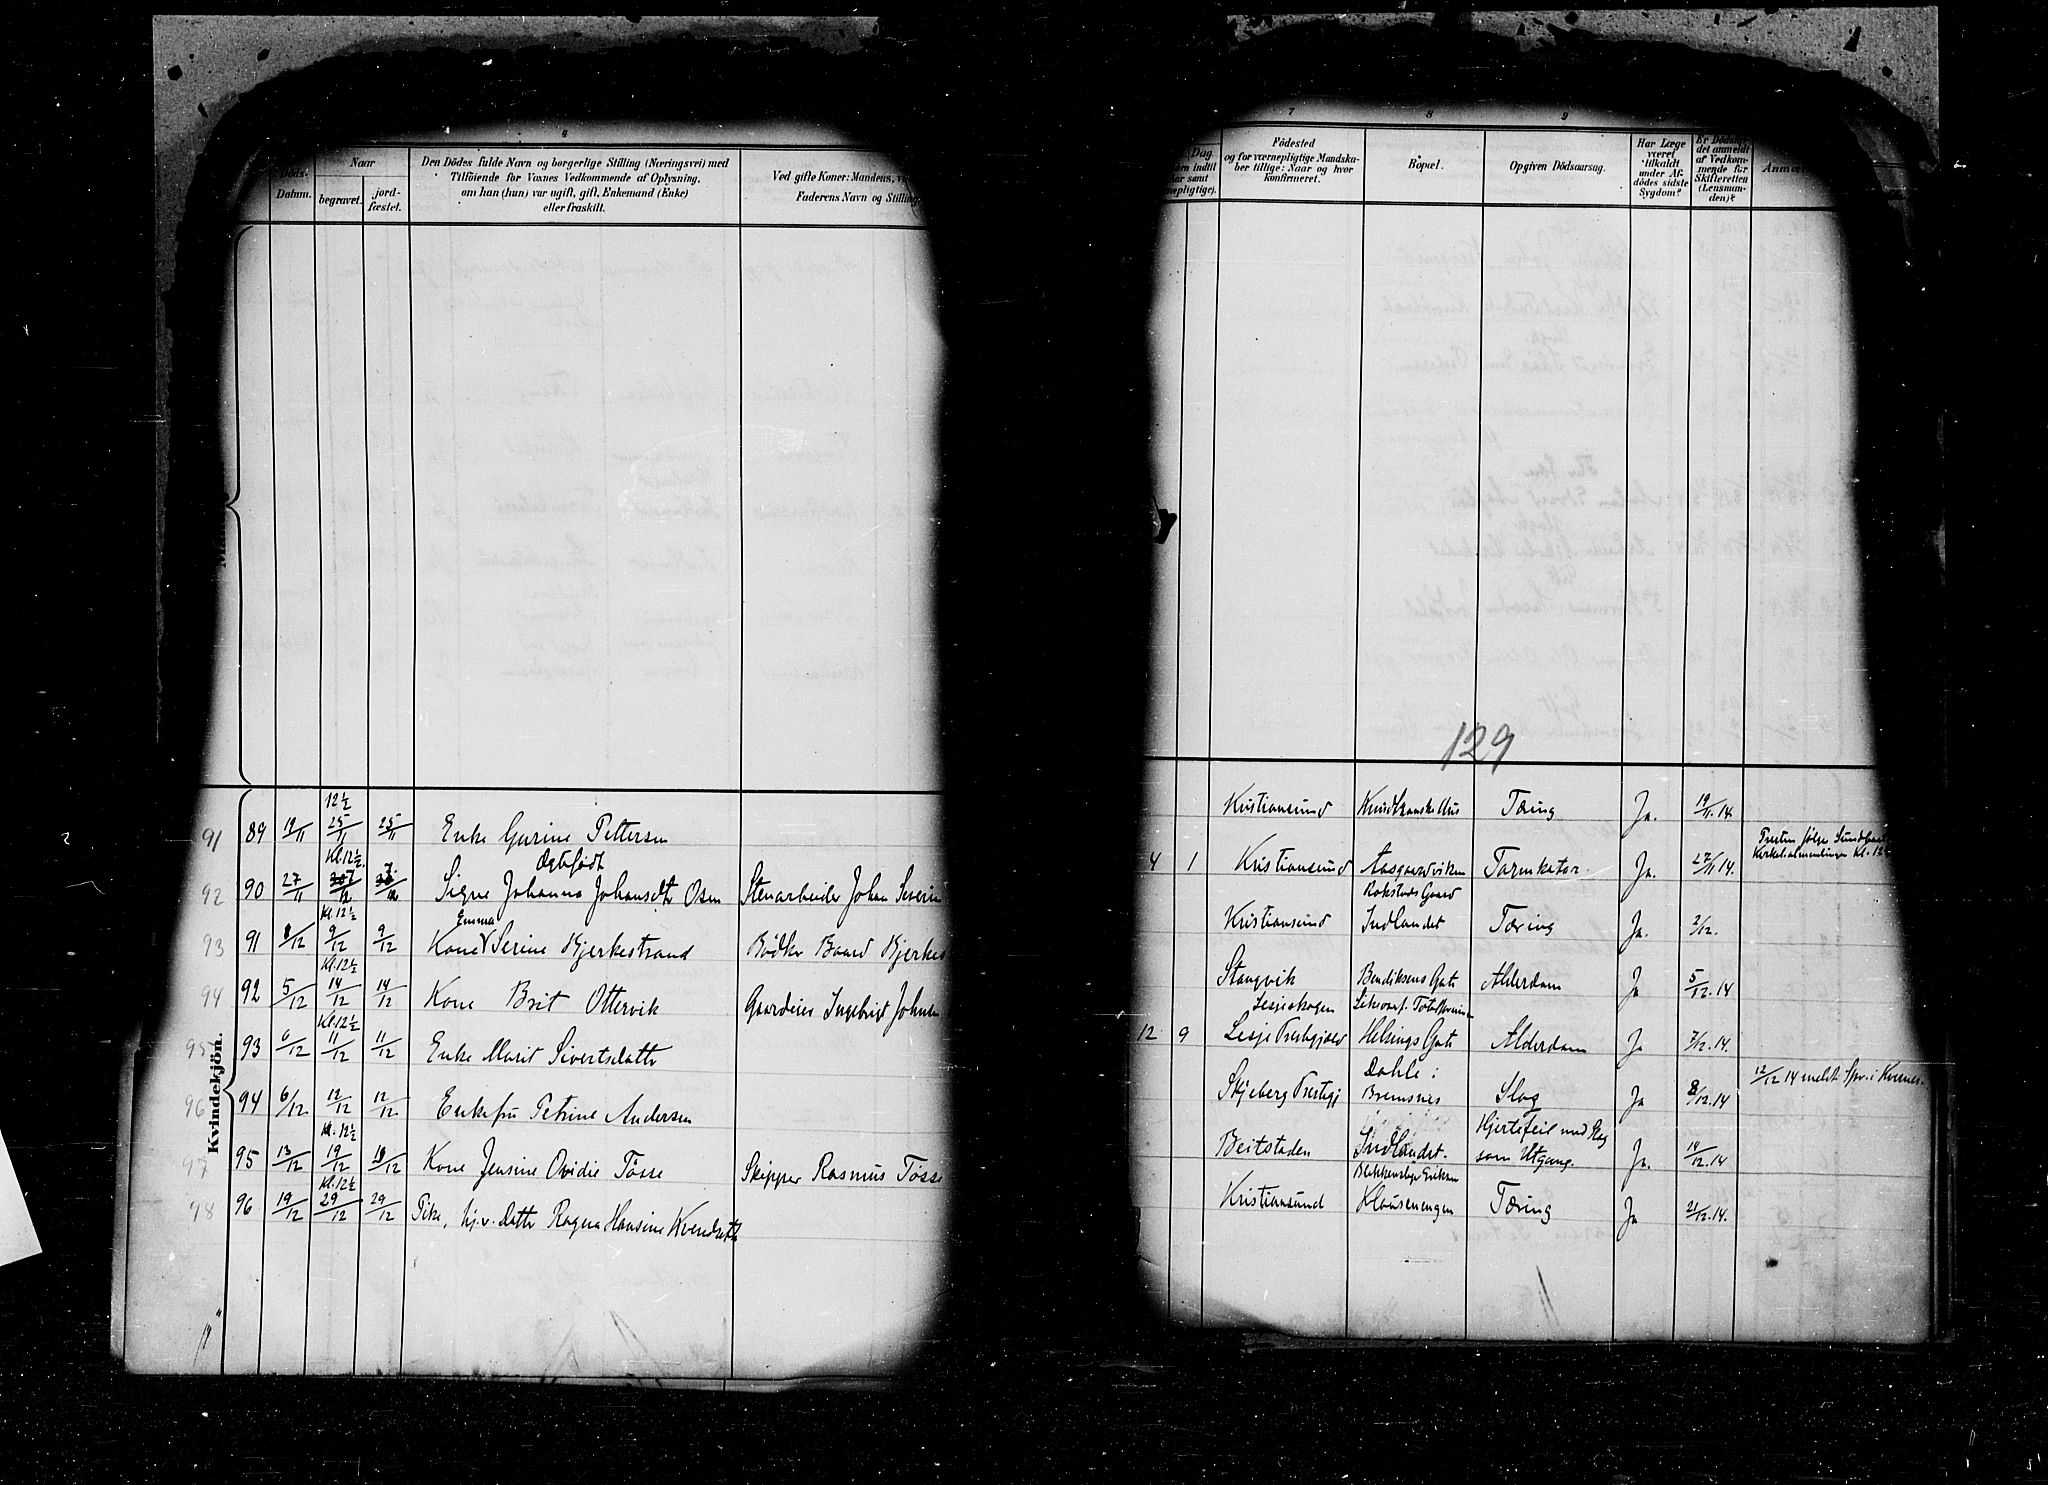 4
Döds-
Datum.
Naar
begravet.
jord-
fæstet.
Den Dödes fulde Navn og borgerlige Stilling (Næringsvei) med
Tilföiende for Voxnes Vedkommende af Oplysning,
om han (hun) var ugift, gift, Enkemand (Enke)
eller fraskilt.
Ved gifte Koner: Mandens, v
Faderens Navn og Stilling
Kvindekjön.
12½
91 89 19/11 25/11 25/11 Enke Gurine Pettersen
Kl. 12½ Ægtefödt
92 90 27/11 /12 /12 Signe Johanna Johansdtr Osen Stenarbeider Johan Severin
Kl. 12½ Emma
93 91 1/12 9/12 9/12 Kone Serine Bjerkestrand Bödker Baard Bjerkes
Kl. 12½
94 92 5/12 14/12 14/12 Kone Brit Ottervik Gaardeier Ingebrigt Johnsen
Kl. 12½
95 93 6/12 11/12 11/12 Enke Marit Sivertsdatter
96 94 6/12 12/12 12/12 Enkefru Petrine Andersen
Kl. 12½
97 95 13/12 19/12 19/12 Kone Jensine Ovidie Tösse Skipper Rasmus Tösse
Kl. 12½
98 96 19/12 29/12 29/12 Pike, hj.v. datter Ragna Hansine Kvendseth
7 8 9
Dag
Födested
og for værnepligtige Mandska-
ber tillige: Naar og hvor
konfirmeret.
Bopæl.
Opgiven Dödsaarsag.
Har Læge
været
tilkaldt
under Af-
dödes sidste
Sygdom?
Er Dödsfal-
det anmeldt
af Vedkom-
mende for
Skifteretten
(Lensman-
den)?
Anmæ
129
Kristiansund Tæring Ja. 19/11.14.
4 1 Kristiansund Aasgaardviken Tarmkatar. Ja. 27/11 14.
Rokstads Gaard
Kristiansund Indlandet Tæring Ja. 2/12.
Stangvik Bendiksens Gate Alderdom Ja 5/12.14
Lesjeskogen
12 9 Lesje Prestegjeld Helsings Gate Alderdom Ja 7/12.14.
Dahle i 12/12 14 meldt Spr. i Kvernes.
Skjeberg Prestegj Bremsnes Slag Ja 8/12.14
Hjertefeil med Slag
Beitstaden Indlandet. som Utgang. Ja. 14/12.14
Kristiansund Klausenengen Tæring Ja 21/12.14.